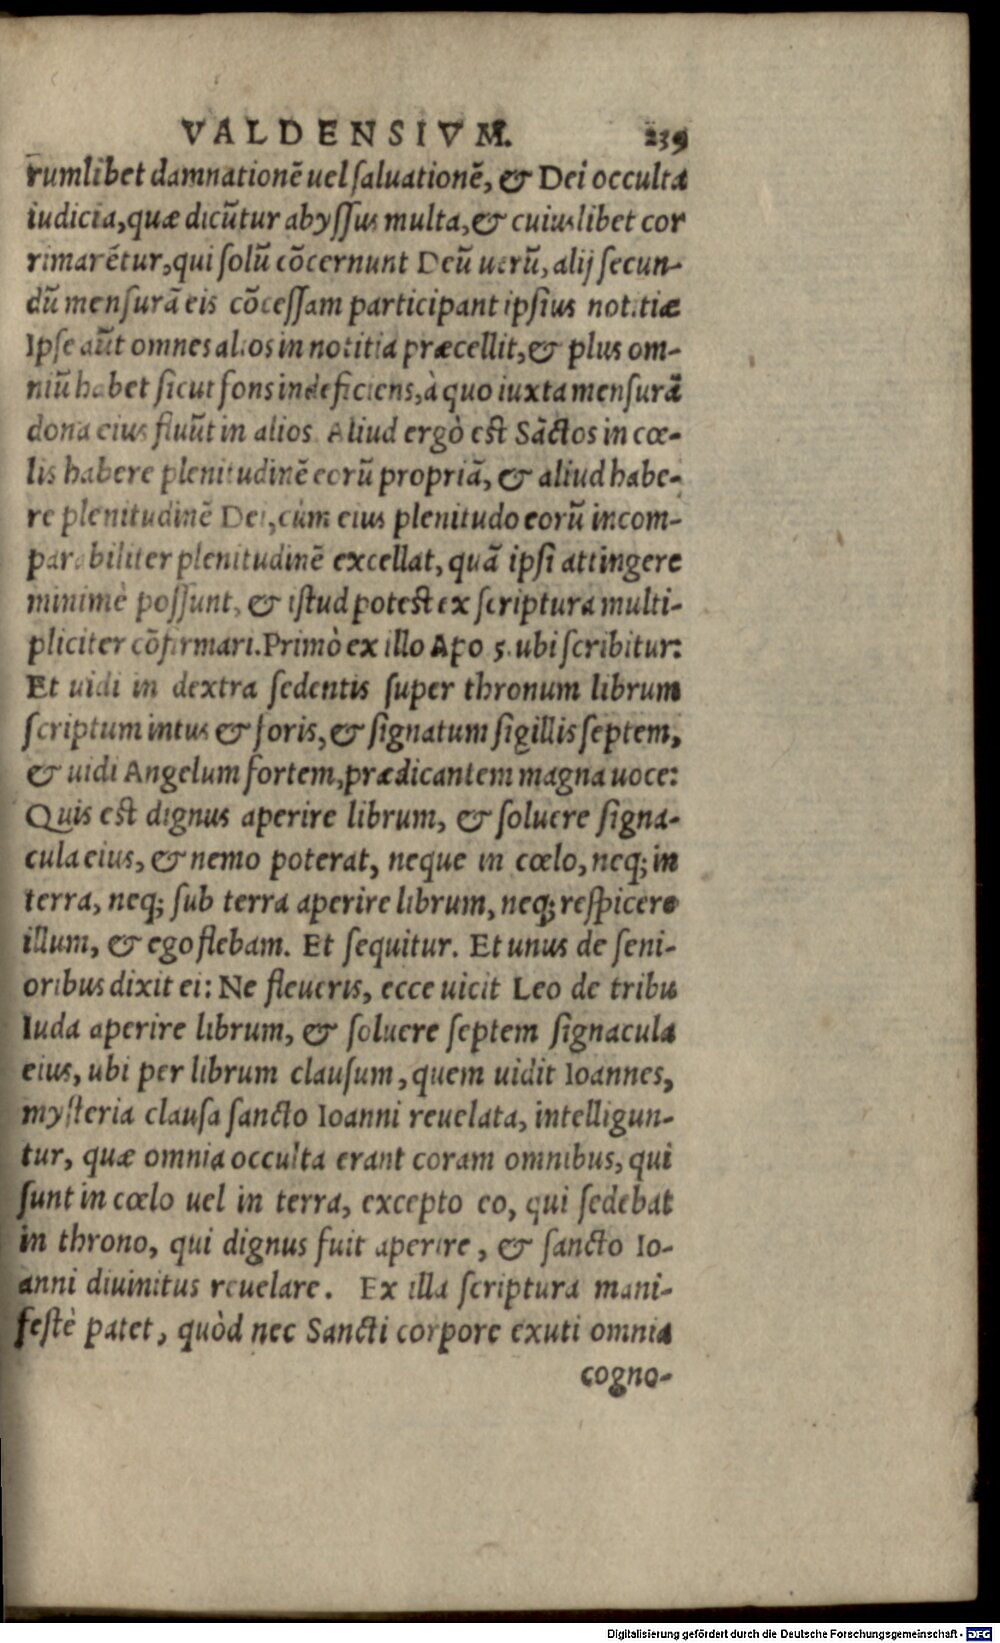 VALDENSIVM. 239
rumlibet damnationē uel saluationē, & Dei occulta
iudicia, quæ dicūtur abyssus multa, & cuiuslibet cor
rimarētur, qui solū cōcernunt Deū uerū, alij secun-
dū mensurā eis cōcessam participant ipsius notitiæ
Ipse aūt omnes alios in notitia præcellit, & plus om-
niū habet sicut fons indeficiens, à quo iuxta mensurā
dona eius fluūt in alios. Aliud ergò est Sāctos in cœ-
lis habere plenitudinē eorū propriā, & aliud habe-
re plenitudinē Dei, cùm eius plenitudo eorū incom-
parabiliter plenitudinē excellat, quā ipsi attingere
minimè possunt, & istud potest ex scriptura multi-
pliciter cōfirmari. Primò ex illo Apo 5. ubi scribitur:
Et uidi in dextra sedentis super thronum librum
scriptum intus & foris, & signatum sigillis septem,
& uidi Angelum fortem, prædicantem magna uoce:
Quis est dignus aperire librum, & soluere signa-
cula eius, & nemo poterat, neque in cœlo, neq; in
terra, neq; sub terra aperire librum, neq; respicere
illum, & ego flebam. Et sequitur. Et unus de seni-
oribus dixit ei: Ne fleueris, ecce uicit Leo de tribu
Iuda aperire librum, & soluere septem signacula
eius, ubi per librum clausum, quem uidit Ioannes,
mysteria clausa sancto Ioanni reuelata, intelligun-
tur, quæ omnia occulta erant coram omnibus, qui
sunt in cœlo uel in terra, excepto eo, qui sedebat
in throno, qui dignus fuit aperire, & sancto Io-
anni diuinitus reuelare. Ex illa scriptura mani-
festè patet, quòd nec Sancti corpore exuti omnia
cogno-
Digitalisierung gefördert durch die Deutsche Forschungsgemeinschaft - DFG